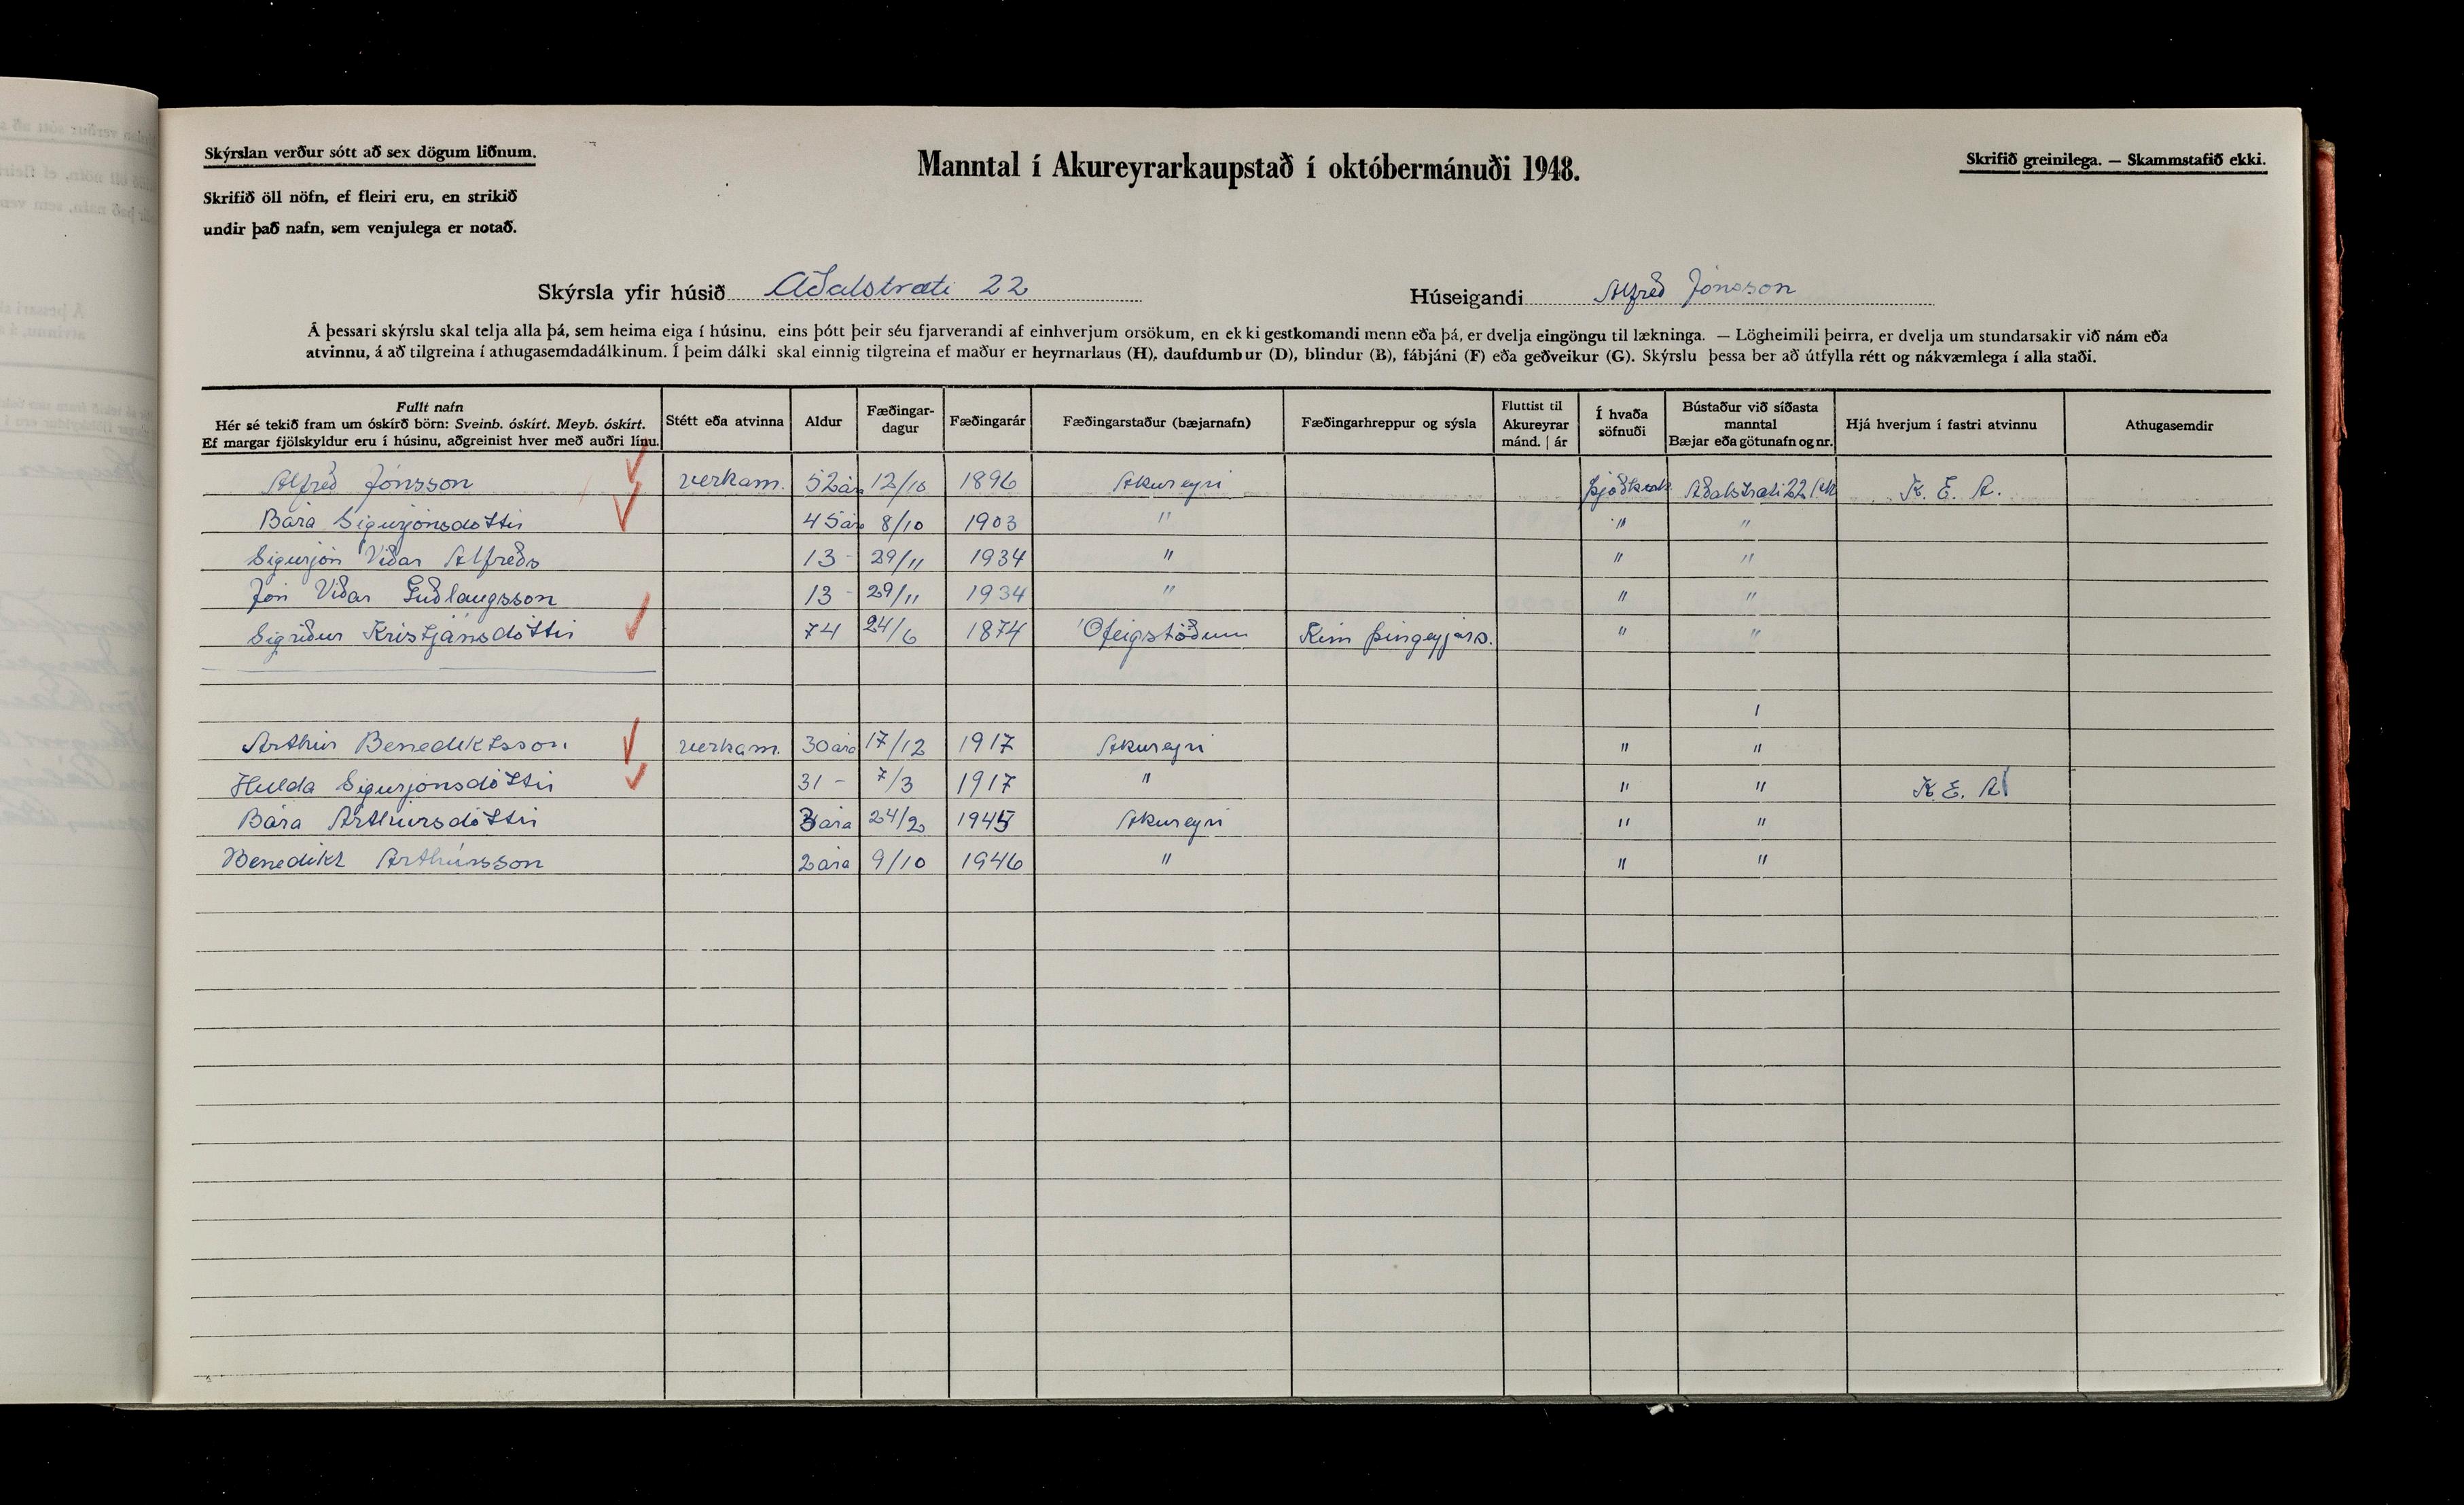 Skýrslan verður sótt að sex dögum liðnum.
Skrifið öll nöfn, ef fleiri eru, en strikið
undir það nafn, sem venjulega er notað.
Manntal í Akureyrarkaupstað í októbermánuði 1948.
Skrifið greinilega. — Skammstafið ekki.
Skýrsla yfir húsið Aðalstræti 22
Húseigandi Alfreð Jónsson
Á þessari skýrslu skal telja alla þá, sem heima eiga í húsinu, eins þótt þeir séu fjarverandi af einhverjum orsökum, en ekki gestkomandi menn eða þá, er dvelja eingöngu til lækninga. — Lögheimili þeirra, er dvelja um stundarsakir við nám eða
atvinnu, á að tilgreina í athugasemdadálkinum. Í þeim dálki skal einnig tilgreina ef maður er heyrnarlaus (H), daufdumbur (D), blindur (B), fábjáni (F) eða geðveikur (G). Skýrslu þessa ber að útfylla rétt og nákvæmlega í alla staði.
Fullt nafn
Hér sé tekið fram um óskírð börn: Sveinb. óskírt. Meyb. óskírt.
Ef margar fjölskyldur eru í húsinu, aðgreinist hver með auðri línu.
Stétt eða atvinna
Aldur
Fæðingar-
dagur
Fæðingarár
Fæðingarstaður (bæjarnafn)
Fæðingarhreppur og sýsla
Fluttist til
Akureyrar
mánd. | ár
Í hvaða
söfnuði
Bústaður við síðasta
manntal
Bæjar eða götunafn og nr.
Hjá hverjum í fastri atvinnu
Athugasemdir
Alfreð Jónsson verkam. 52 ára 12/10 1896 Akureyri Þjóðkirk. Aðalstræti 22 K. E. A.
Bára Sigurjónsdóttir 45 ára 8/10 1903 " " "
Sigurjón Viðar Alfreðs 13 - 29/11 1934 " " "
Jón Viðar Guðlaugsson 13 - 29/11 1934 " " "
Sigríður Kristjánsdóttir 74 24/6 1874 Ófeigstöðum Kinn Þingeyjars. " "
Arthúr Benediktsson verkam. 30 ára 17/12 1917 Akureyri " "
Hulda Sigurjónsdóttir 31 - 7/3 1917 " " " K. E. A.
Bára Arthúrsdóttir 3 ára 24/2 1945 Akureyri " "
Benedikt Arthúrsson 2 ára 9/10 1946 " " "